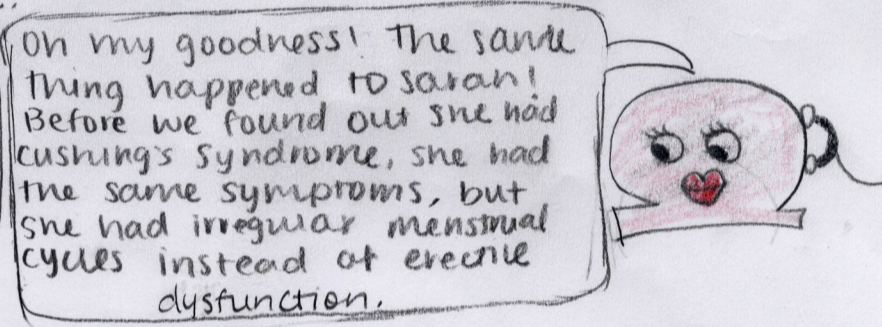 Oh my goodness! The same
thing happened to Sarah!
Before we found out she had
cushing's syndrome, she had
the same symptoms, but
she had irregular menstrual
cycles instead of erectile
dysfunction.